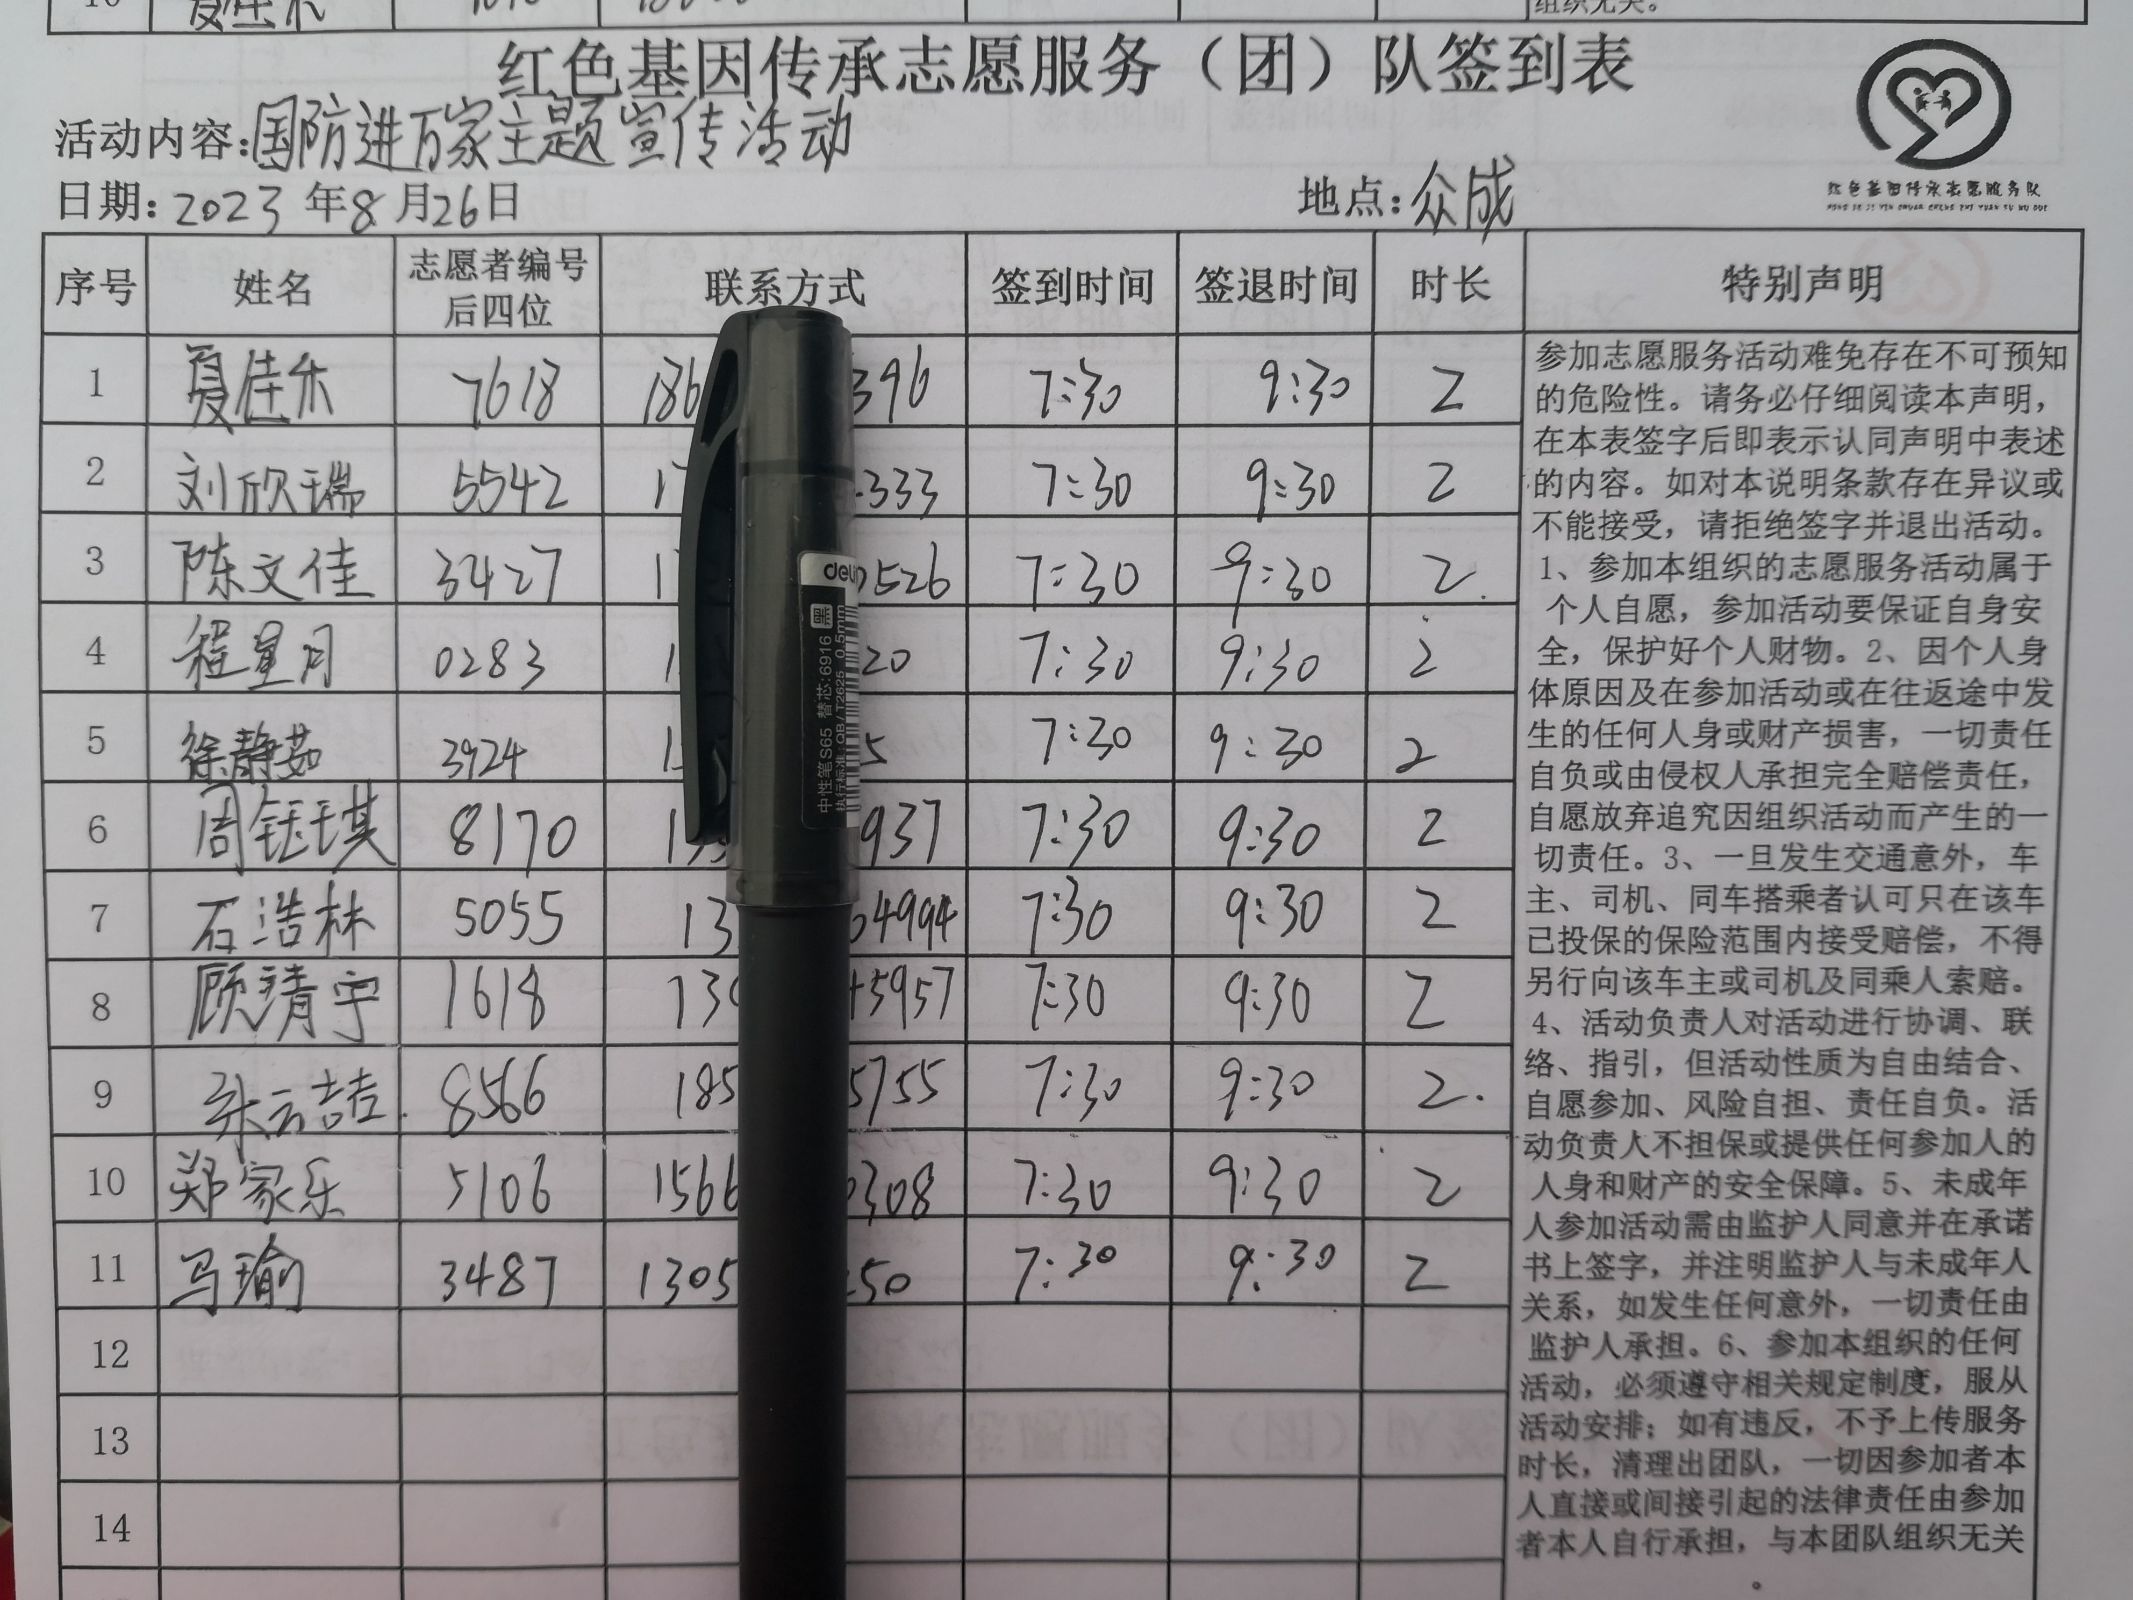 组织无关。
红色基因传承志愿服务（团）队签到表
活动内容：国防进万家主题宣传活动
日期：2023年8月26日 地点：众成
红色基因传承志愿服务队
序号 姓名 志愿者编号后四位 联系方式 签到时间 签退时间 时长 特别声明
1 夏佳乐 7618 186 396 7:30 9:30 2
2 刘欣瑞 5542 1 333 7:30 9:30 2
3 陈文佳 3427 1 526 7:30 9:30 2
4 程星月 0283 1 20 7:30 9:30 2
5 徐静茹 3924 1 5 7:30 9:30 2
6 周钰琪 8170 13 937 7:30 9:30 2
7 石浩林 5055 13 4994 7:30 9:30 2
8 顾清宇 1618 13 5957 7:30 9:30 2
9 张云喆 8566 185 5755 7:30 9:30 2
10 郑家乐 5106 1566 308 7:30 9:30 2
11 马瑜 3487 1305 50 7:30 9:30 2
12
13
14
参加志愿服务活动难免存在不可预知
的危险性。请务必仔细阅读本声明，
在本表签字后即表示认同声明中表述
的内容。如对本说明条款存在异议或
不能接受，请拒绝签字并退出活动。
1、参加本组织的志愿服务活动属于
个人自愿，参加活动要保证自身安
全，保护好个人财物。2、因个人身
体原因及在参加活动或在往返途中发
生的任何人身或财产损害，一切责任
自负或由侵权人承担完全赔偿责任，
自愿放弃追究因组织活动而产生的一
切责任。3、一旦发生交通意外，车
主、司机、同车搭乘者认可只在该车
已投保的保险范围内接受赔偿，不得
另行向该车主或司机及同乘人索赔。
4、活动负责人对活动进行协调、联
络、指引，但活动性质为自由结合、
自愿参加、风险自担、责任自负。活
动负责人不担保或提供任何参加人的
人身和财产的安全保障。5、未成年
人参加活动需由监护人同意并在承诺
书上签字，并注明监护人与未成年人
关系，如发生任何意外，一切责任由
监护人承担。6、参加本组织的任何
活动，必须遵守相关规定制度，服从
活动安排；如有违反，不予上传服务
时长，清理出团队，一切因参加者本
人直接或间接引起的法律责任由参加
者本人自行承担，与本团队组织无关
。
deli
黑
中性笔S65 替芯:6916
执行标准:QB/T2625 0.5mm